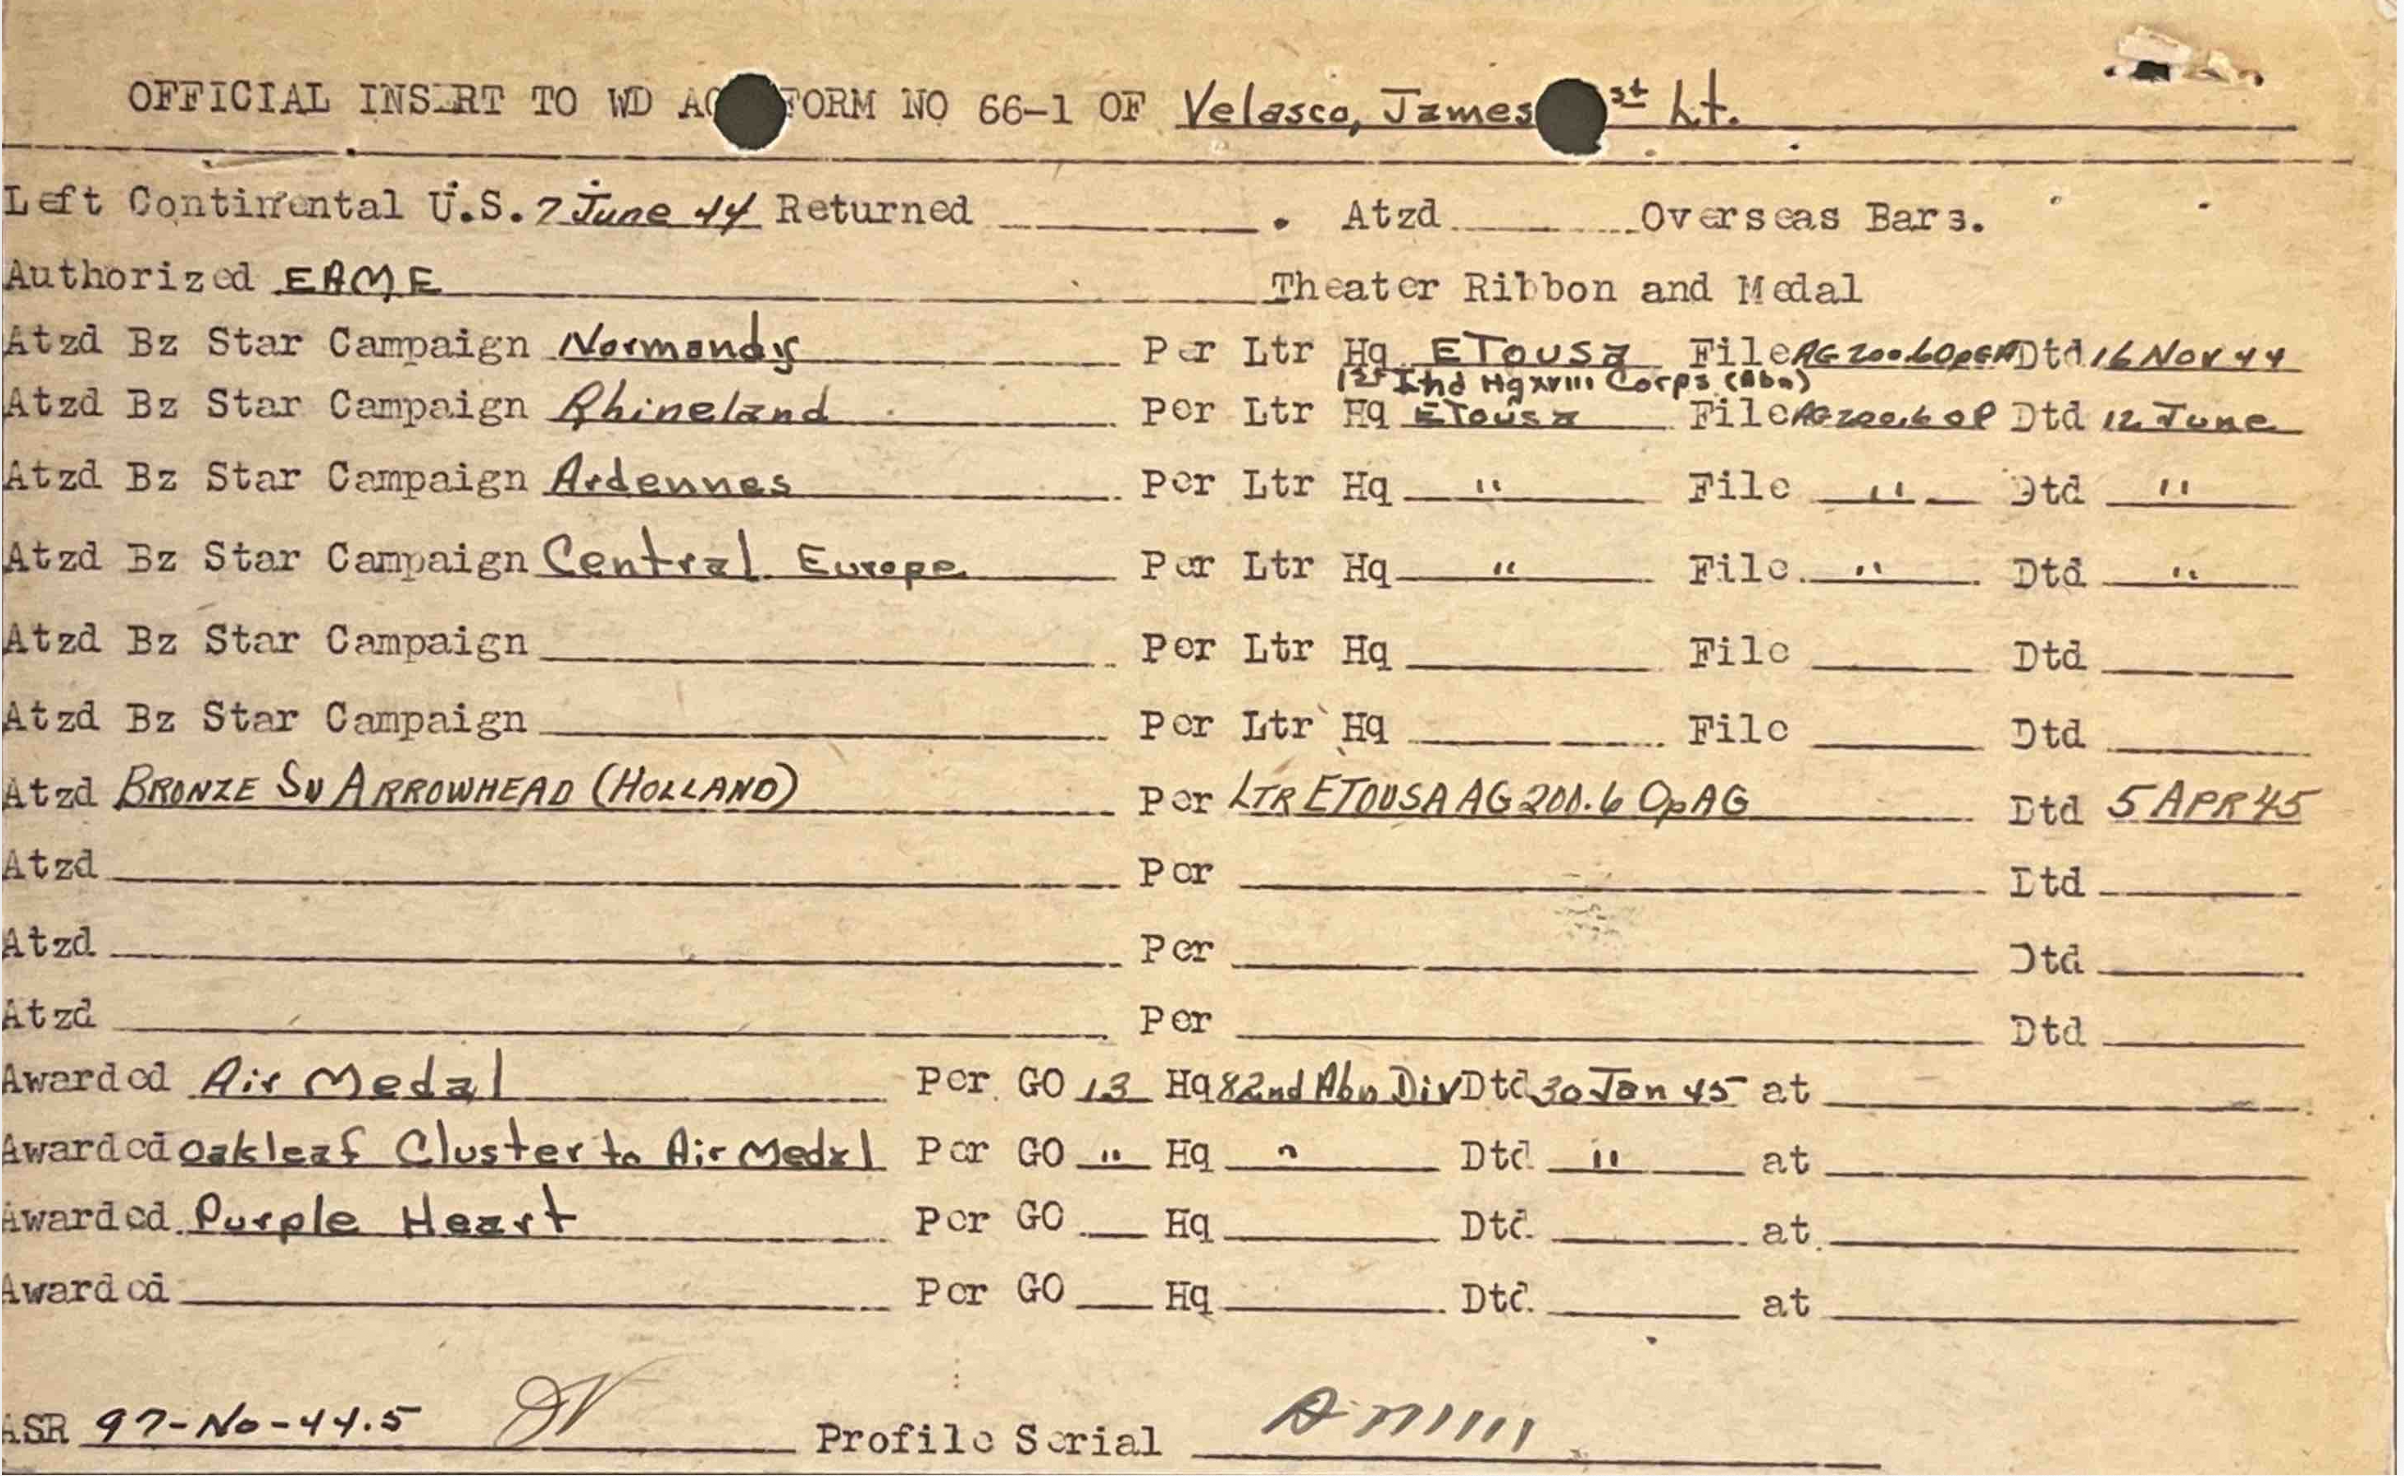 OFFICIAL INSERT TO WD AG FORM NO 66-1 OF Velasco, James 1st Lt.
Left Continental U.S. 7 June 44 Returned ______. Atzd ______ Overseas Bars.
Authorized EAME Theater Ribbon and Medal
Atzd Bz Star Campaign Normandy Per Ltr Hq ETousa File Dtd 16 Nov 44
1st Ind Hq XVIII Corps (Abn)
Atzd Bz Star Campaign Rhineland Per Ltr Hq ETousa File AG200.6 OP Dtd 12 June
Atzd Bz Star Campaign Ardennes Per Ltr Hq " File " Dtd "
Atzd Bz Star Campaign Central Europe Per Ltr Hq " File " Dtd "
Atzd Bz Star Campaign ______ Per Ltr Hq ______ File ______ Dtd ______
Atzd Bz Star Campaign ______ Per Ltr Hq ______ File ______ Dtd ______
Atzd BRONZE Sv ARROWHEAD (HOLLAND) Per LTR ETOUSA AG 200.6 OpAG Dtd 5 APR 45
Atzd ______ Per ______ Dtd ______
Atzd ______ Per ______ Dtd ______
Atzd ______ Per ______ Dtd ______
Awarded Air Medal Per GO 13 Hq 82nd Abn Div Dtd 30 Jan 45 at ______
Awarded Oakleaf Cluster to Air Medal Per GO " Hq " Dtd " at ______
Awarded Purple Heart Per GO ___ Hq ______ Dtd ______ at ______
Awarded ______ Per GO ___ Hq ______ Dtd ______ at ______
ASR 97-No-44.5 JV Profile Serial A-111111